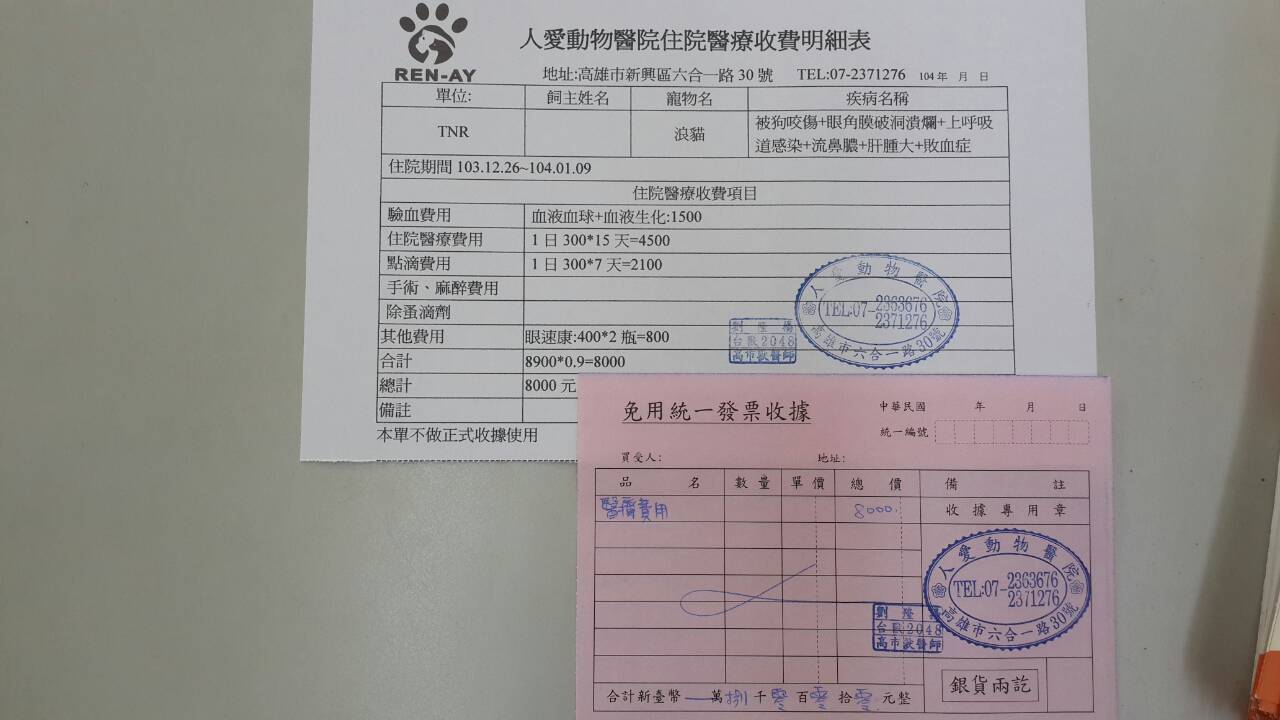 人愛動物醫院住院醫療收費明細表
REN-AY
地址:高雄市新興區六合一路 30 號 TEL:07-2371276 104 年 月 日
單位: 飼主姓名 寵物名 疾病名稱
TNR 浪貓 被狗咬傷+眼角膜破洞潰爛+上呼吸
道感染+流鼻膿+肝腫大+敗血症
住院期間 103.12.26~104.01.09
住院醫療收費項目
驗血費用 血液血球+血液生化:1500
住院醫療費用 1 日 300*15 天=4500
點滴費用 1 日 300*7 天=2100
手術、麻醉費用
除蚤滴劑
其他費用 眼速康:400*2 瓶=800
合計 8900*0.9=8000
總計 8000 元
備註
本單不做正式收據使用
人愛動物醫院
TEL:07-2363676
2371276
高雄市六合一路30號
劉隆
2048
高市獸醫師
免用統一發票收據
中華民國 年 月 日
統一編號
買受人: 地址:
品名 數量 單價 總價 備註
醫療費用 8000 收據專用章
人愛動物醫院
TEL:07-2363676
2371276
高雄市六合一路30號
劉隆
2048
高市獸醫師
合計新臺幣 萬捌千零百零拾零元整
銀貨兩訖